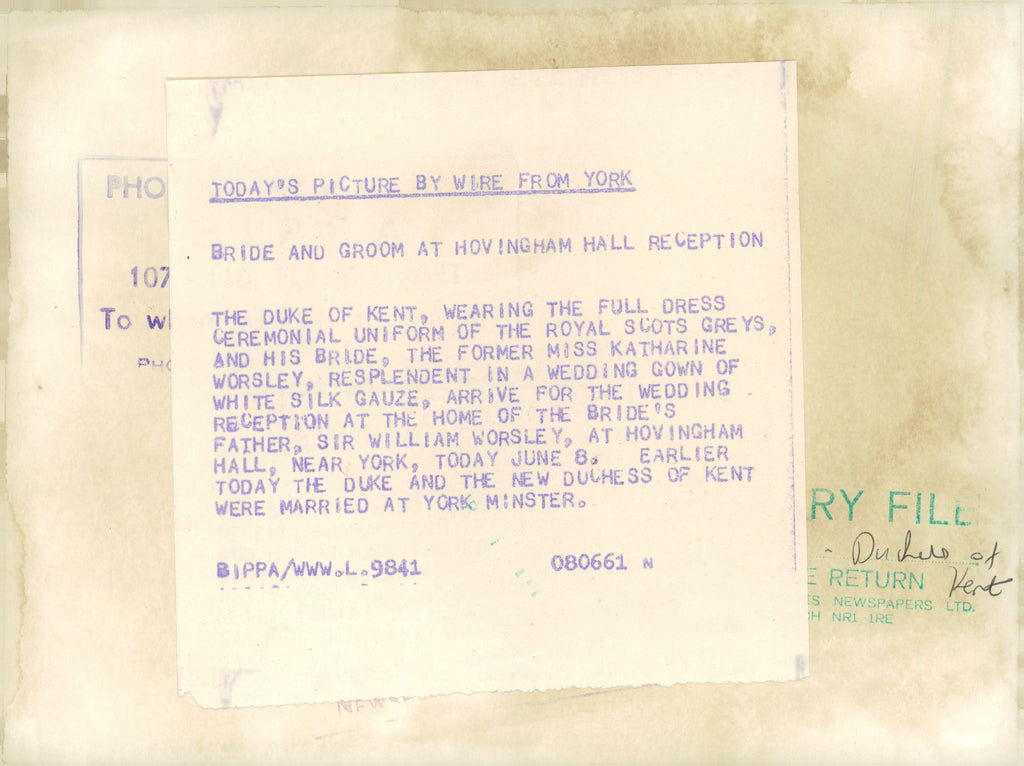 TODAY'S PICTURE BY WIRE FROM YORK
BRIDE AND GROOM AT HOVINGHAM HALL RECEPTION
THE DUKE OF KENT, WEARING THE FULL DRESS
CEREMONIAL UNIFORM OF THE ROYAL SCOTS GREYS,
AND HIS BRIDE, THE FORMER MISS KATHARINE
WORSLEY, RESPLENDENT IN A WEDDING GOWN OF
WHITE SILK GAUZE, ARRIVE FOR THE WEDDING
RECEPTION AT THE HOME OF THE BRIDE'S
FATHER, SIR WILLIAM WORSLEY, AT HOVINGHAM
HALL, NEAR YORK, TODAY JUNE 8. EARLIER
TODAY THE DUKE AND THE NEW DUCHESS OF KENT
WERE MARRIED AT YORK MINSTER.
BIPPA/WWW.L.9841 080661 N
PHO
107
To w
PHO
RY FILE
- Duchess of
Kent
E RETURN
ES NEWSPAPERS LTD.
CH NR1 1RE